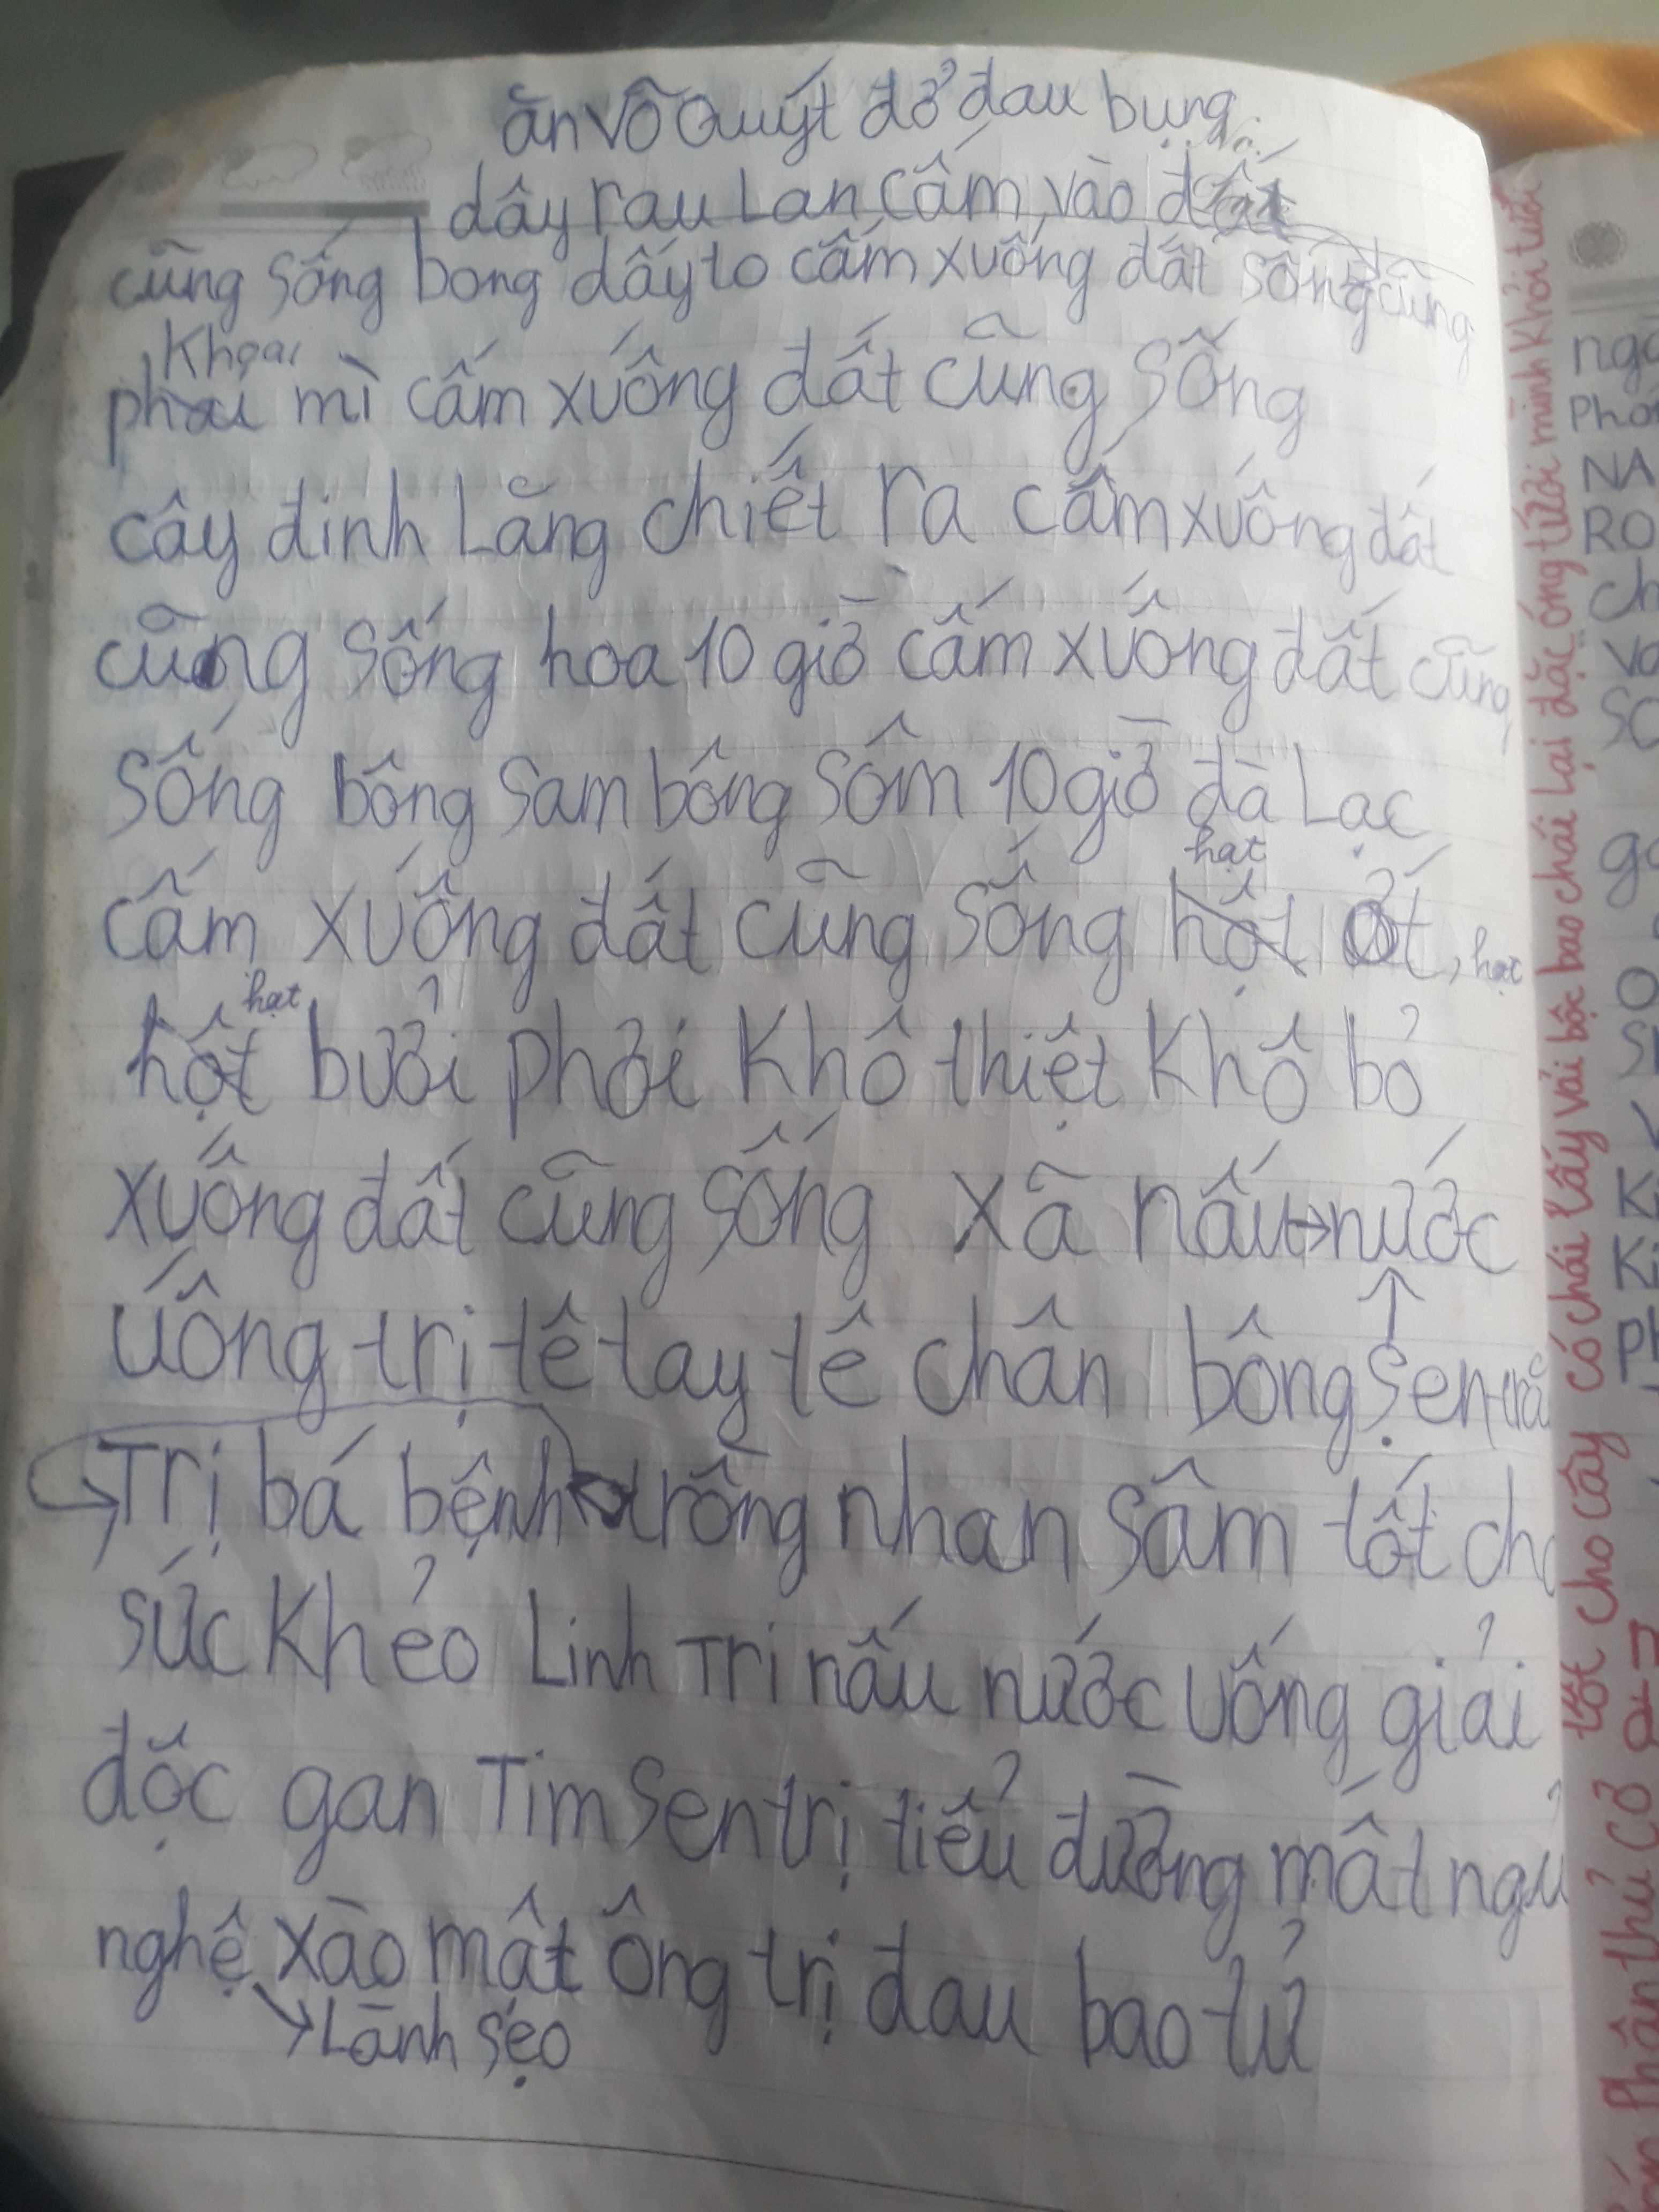 ăn vỗ Quýt đở đau bụng.
dây rau Lan cấm vào đất
cũng sống bong dấy to cấm xuống đất sống cũng
Khoai
phải mì cấm xuống đất cũng sống
cây đinh Lăng chiết ra cấm xuống đất
cũng sống hoa 10 giờ cấm xuống đất cũng
sống bông sam bông sôm 10 giờ đà Lạc
cấm xuống đất cũng sống hột hạt ớt, hạt
hột hạt bưởi phơi Khô thiệt Khô bỏ
xuống đất cũng sống xã nấu → nước
uống trị tê tay tê chân bông sen
Trị bá bệnh trồng nhan sâm tốt cho
sức Khẻo Linh Tri nấu nước uống giải
độc gan Tim sen trị tiểu đường mất ngủ
nghệ xào mật ông trị đau bao tử
Lành sẹo
tốt cho cây có chái lấy vải bọc bao chái lại đặc ống tưới mình khỏi tưới
phân thủ cỏ
NA
RO